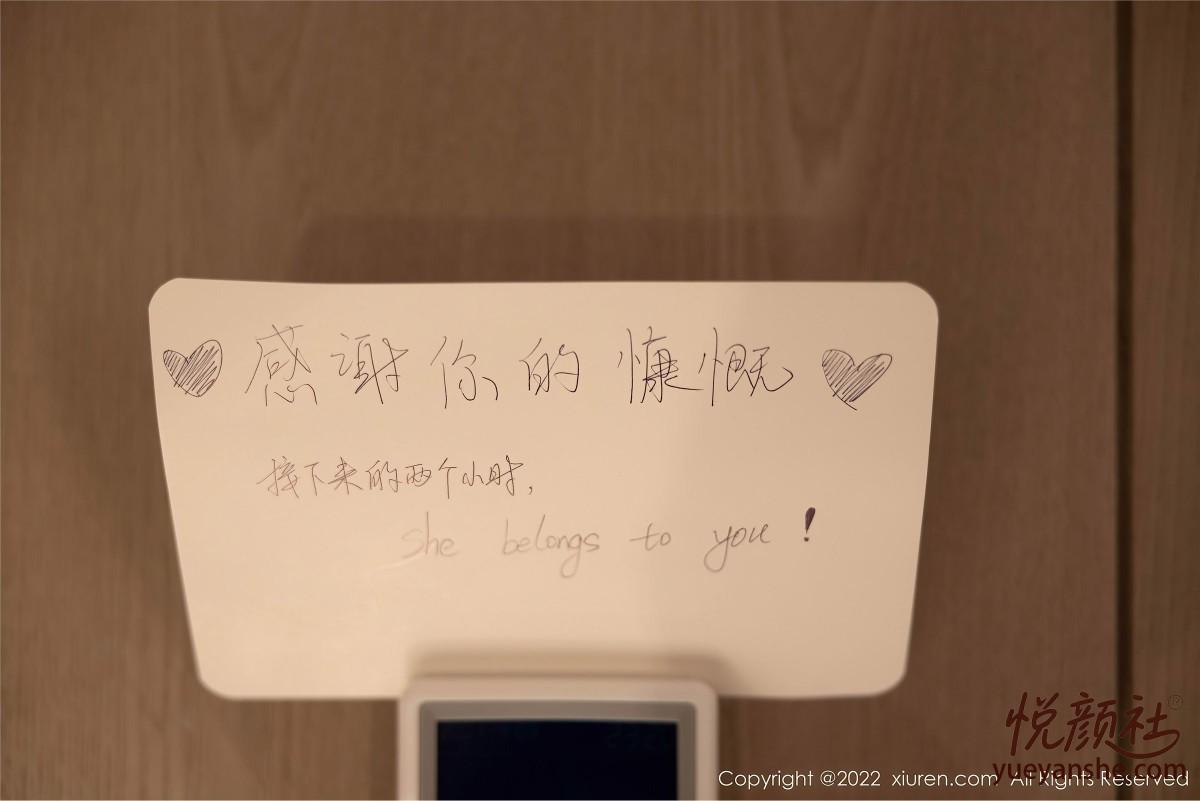 感谢你的慷慨
接下来的两个小时,
she belongs to you!
悦颜社
yueyanshe.com
Copyright @2022 xiuren.com All Rights Reserved